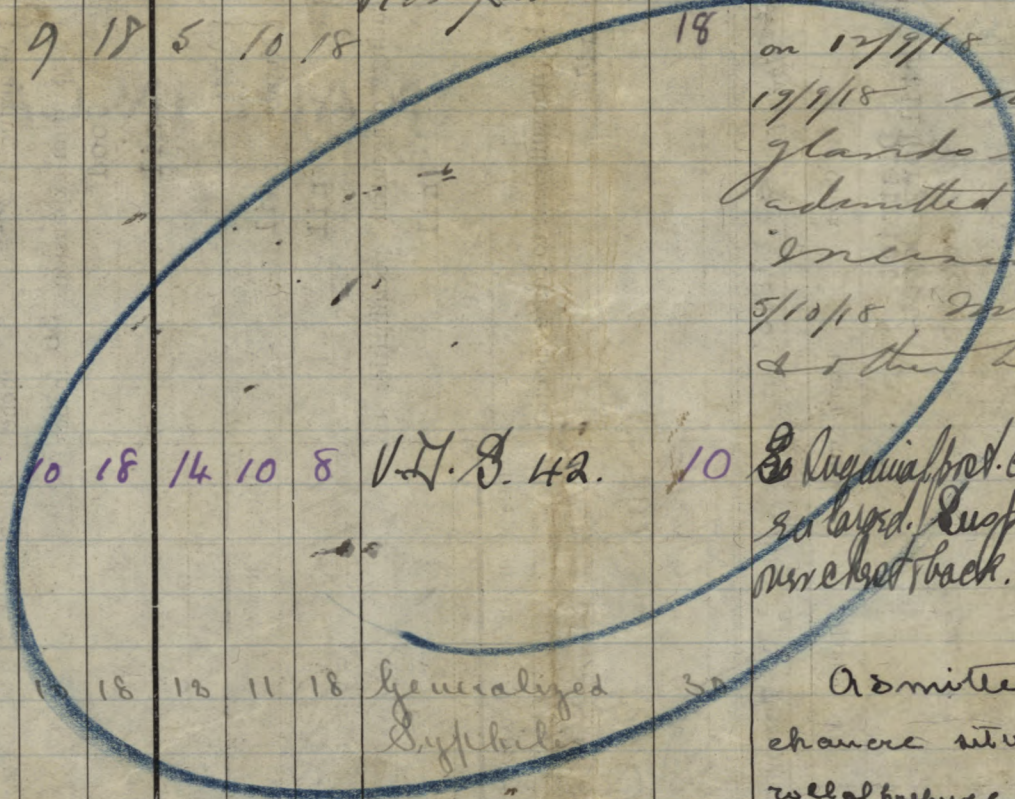 9 18 5 10 18 18 on 12/9/18
19/9/18
glands
admitted
5/10/18
& other
10 18 14 10 8 V.D.S. 42. 10 Inguinal
enlarged.
over chest & back.
18 13 11 18 Generalized 30 Admitte
Syphilis
chancre situ